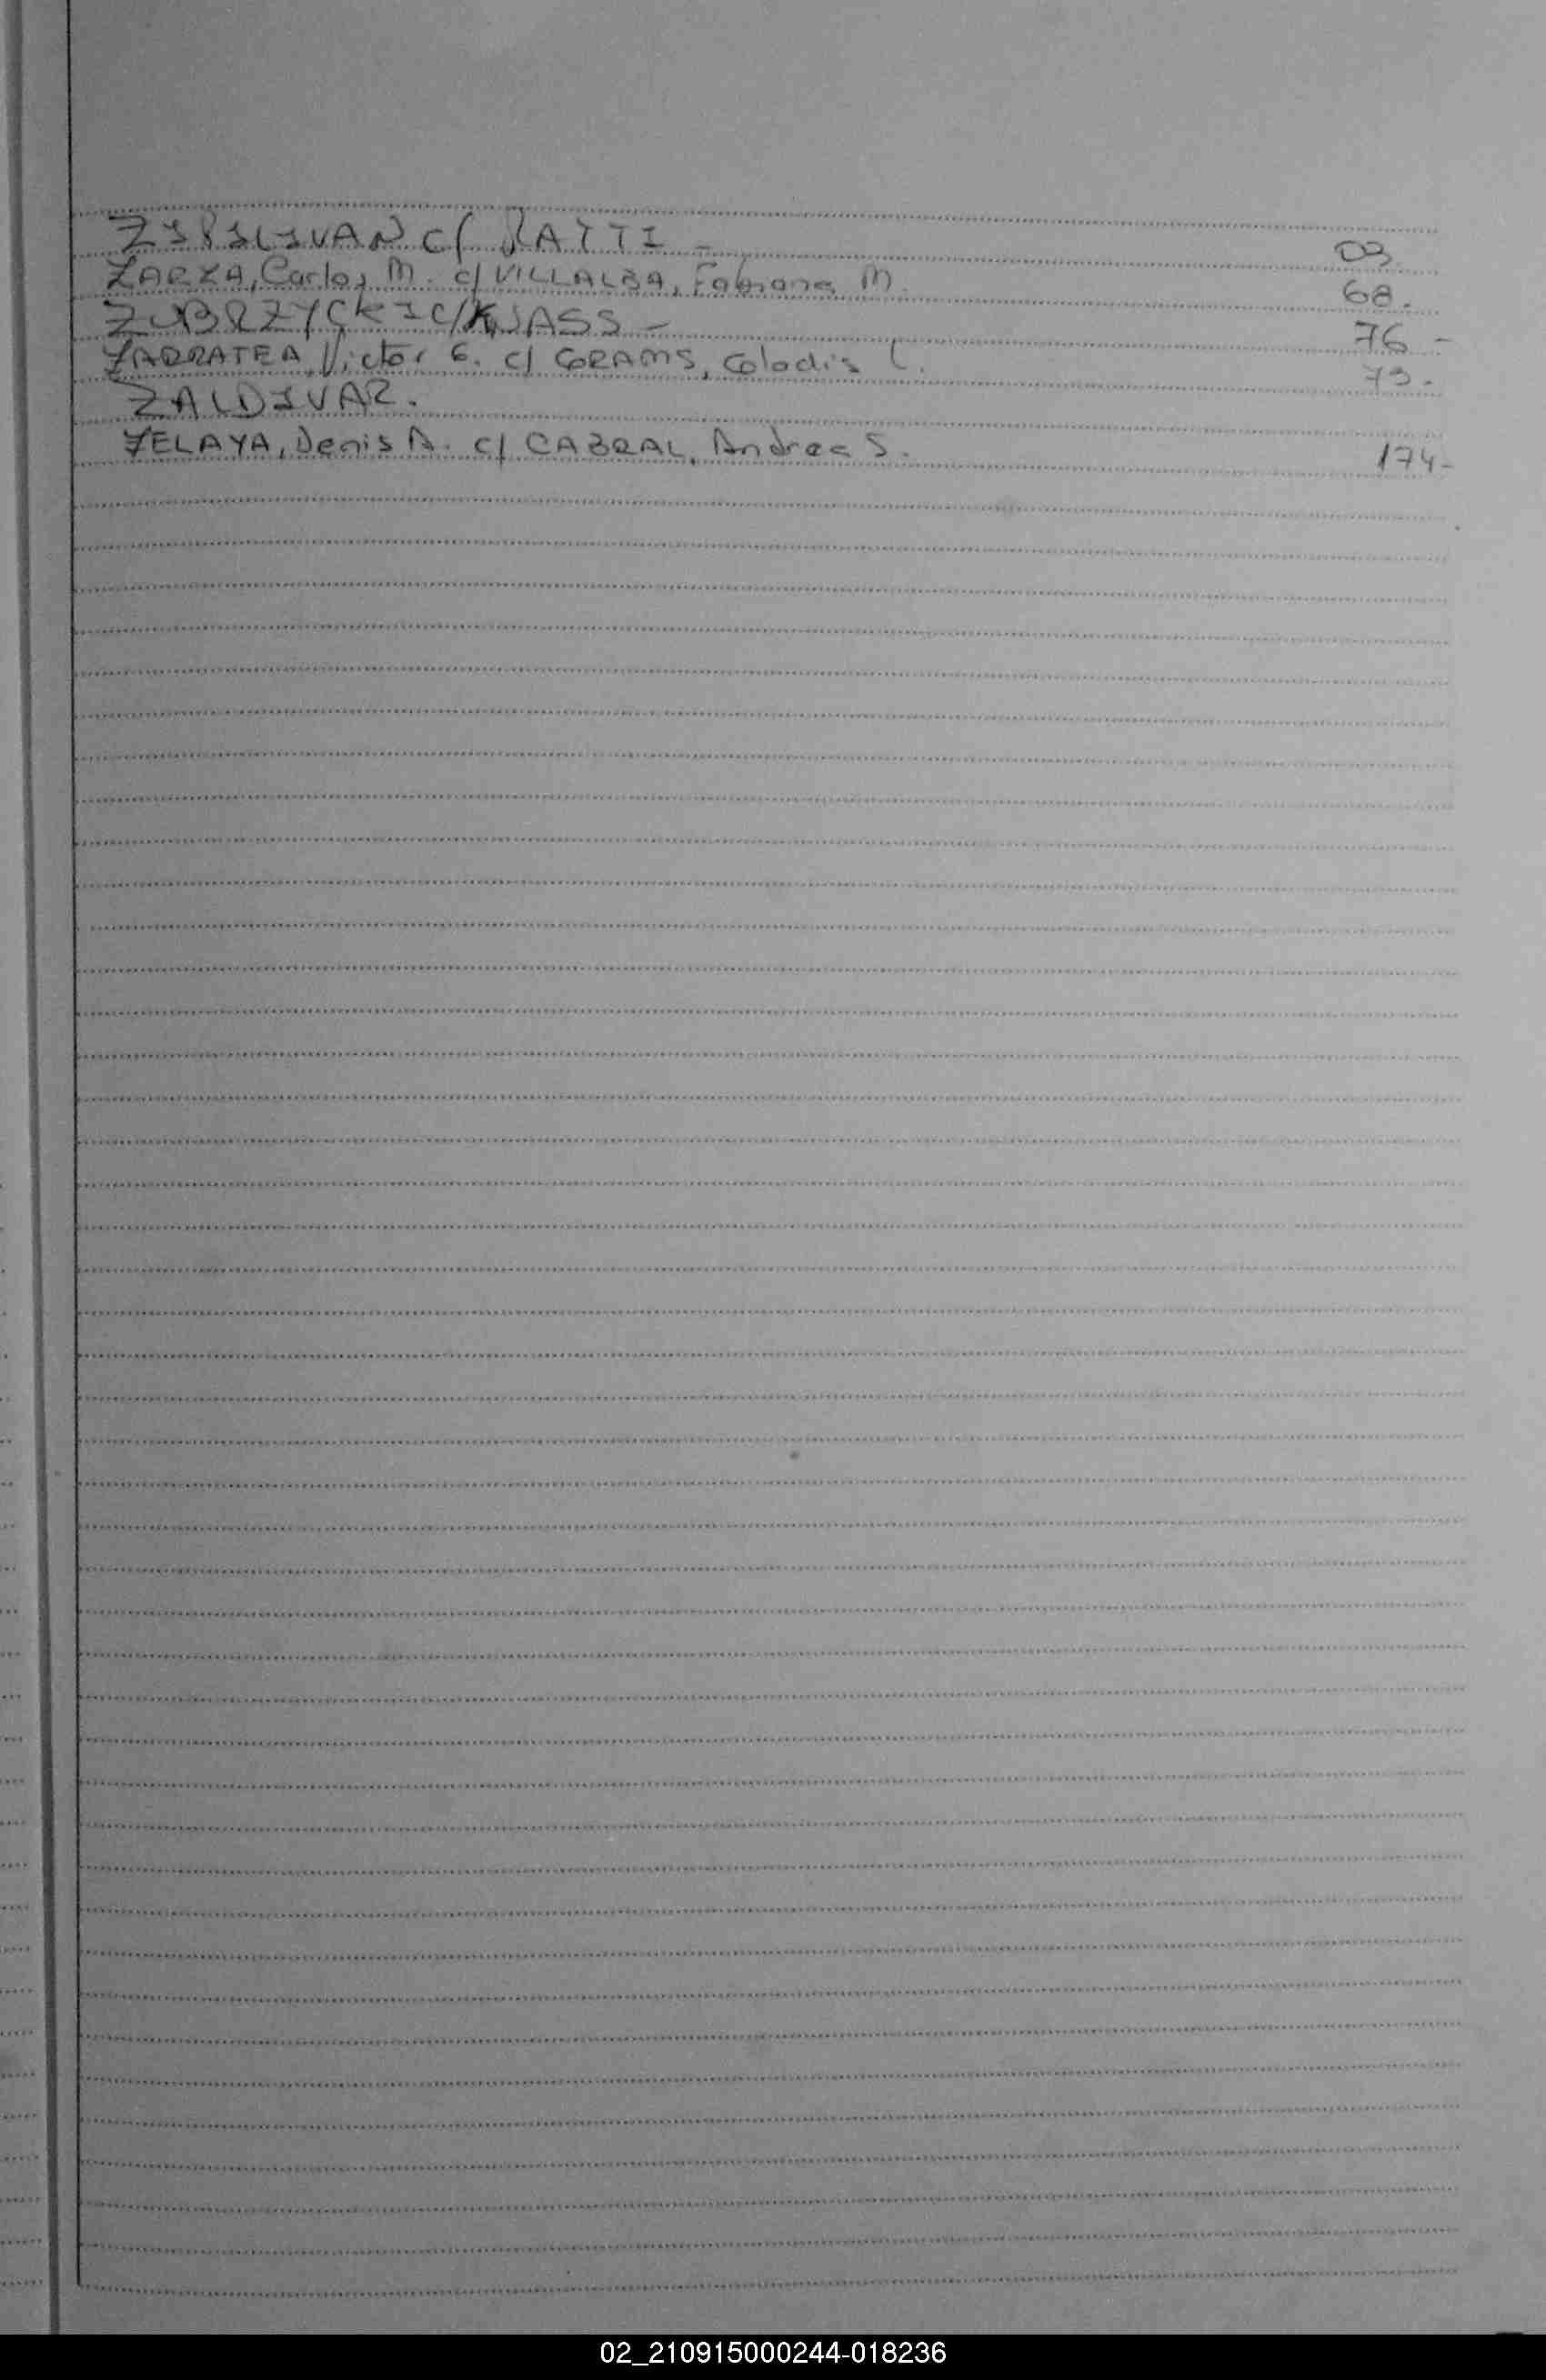 ZIPILIVAN C/ RATTI - 03.
ZARZA, Carlos M. c/ VILLALBA, Fabiana M. 68.
ZUBRZYCKI C/ KJASS - 76 -
ZARRATEA, Victor G. c/ GRAMS, Gladis L. 73.
ZALDIVAR.
ZELAYA, Denis A. c/ CABRAL, Andrea S. 174-
02_210915000244-018236